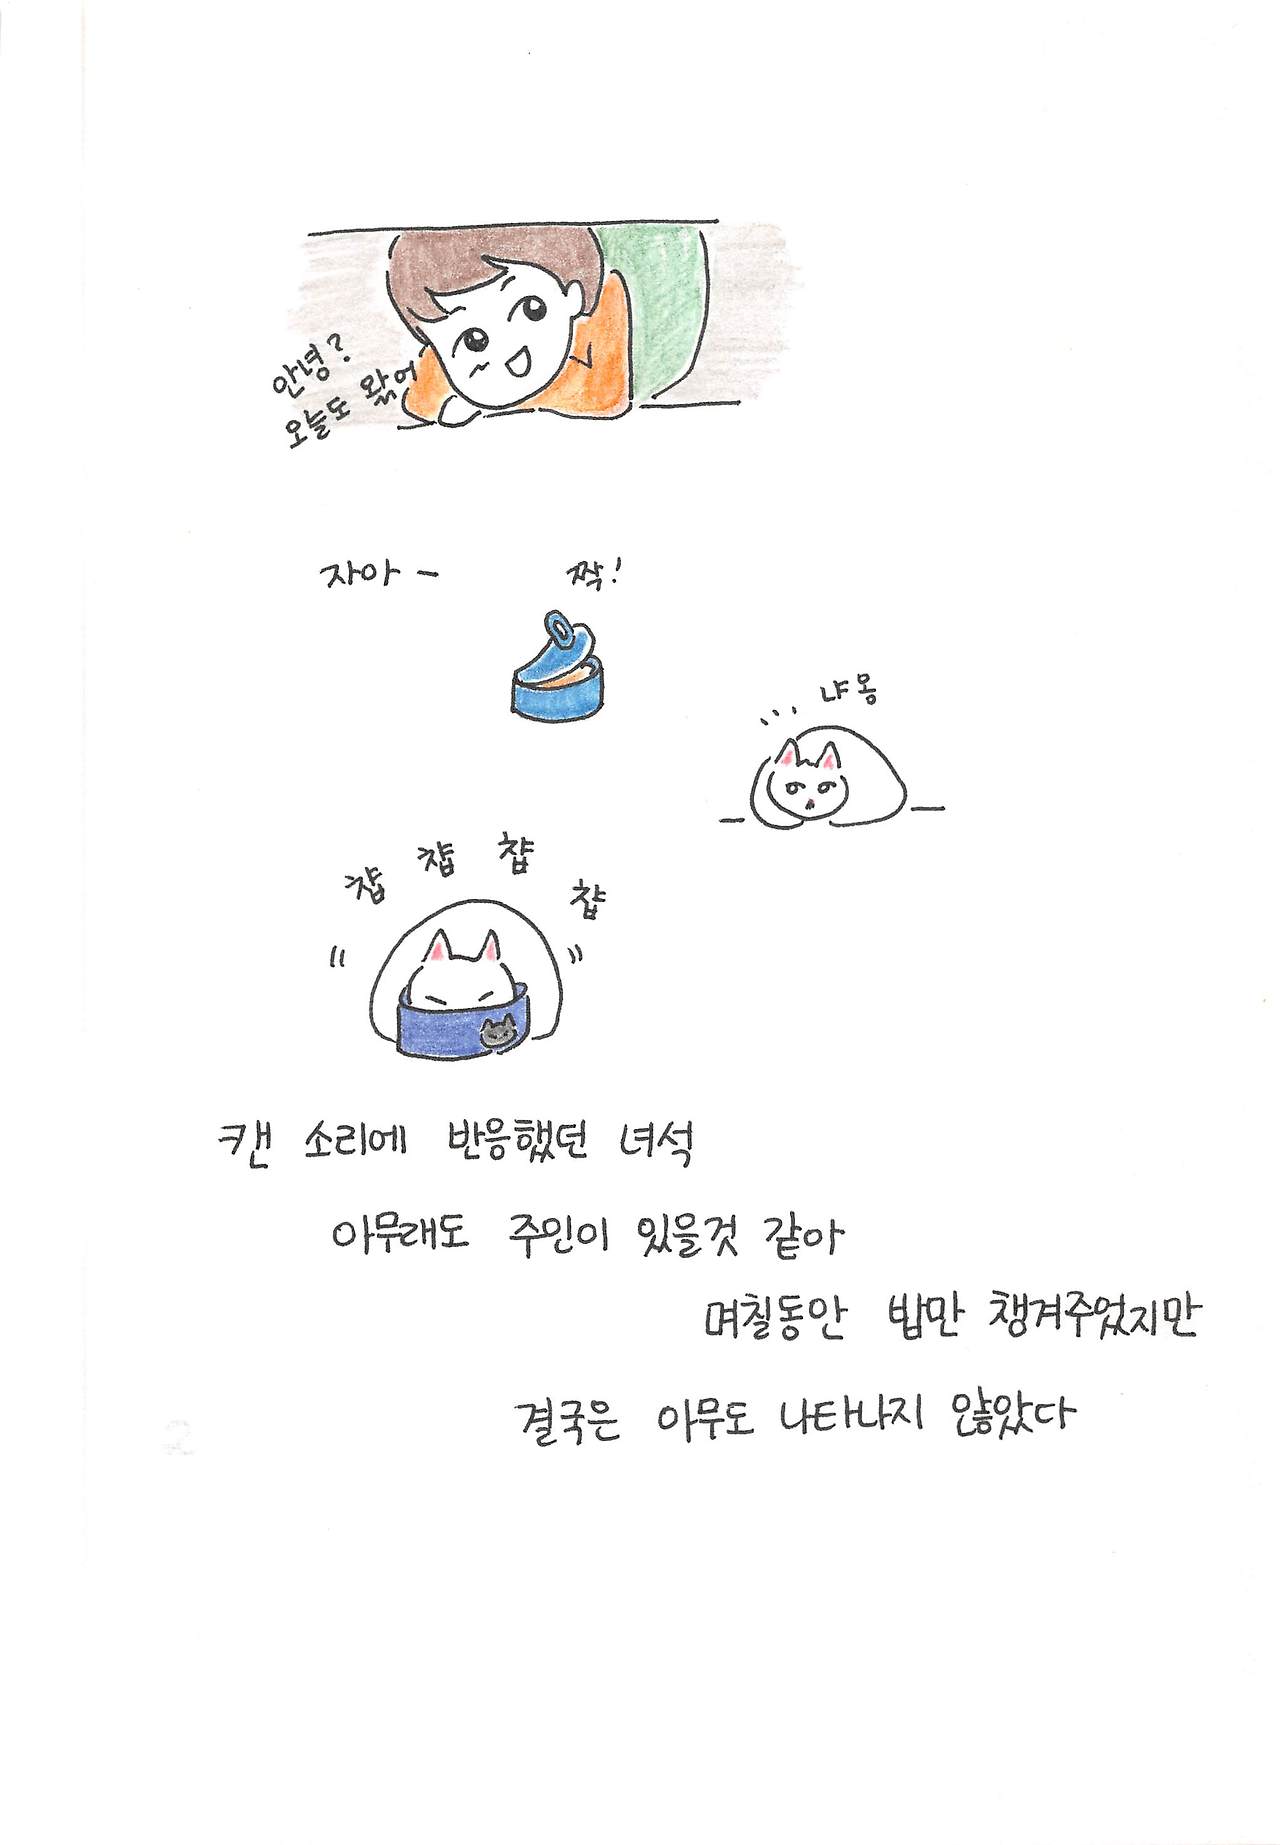 안녕?
오늘도 왔어
자아 - 짝!
냐옹
챱 챱 챱 챱
캔 소리에 반응했던 녀석
아무래도 주인이 있을것 같아
며칠동안 밥만 챙겨주었지만
결국은 아무도 나타나지 않았다